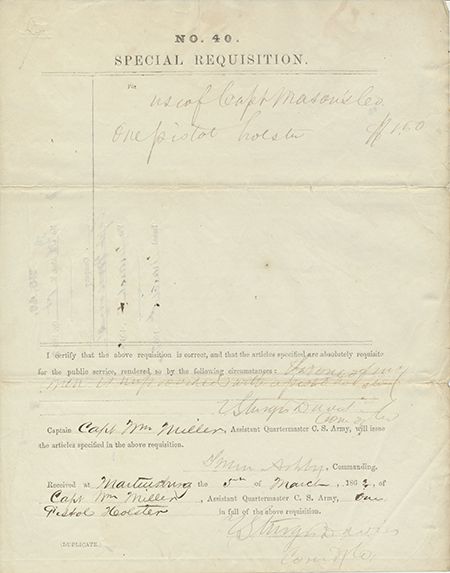 NO. 40.
SPECIAL REQUISITION.
For
use of Capt Mason's Co.
One pistol holster $1.50
I certify that the above requisition is correct, and that the articles specified are absolutely requisite
for the public service, rendered so by the following circumstances: one of my
men is unprovided with a pistol holster
Sturgis Davis
Captain Capt Wm Miller, Assistant Quartermaster C. S. Army, will issue
the articles specified in the above requisition.
Ashby, Commanding.
Received at Martinsburg the 5th of March, 1862, of
Capt Wm Miller, Assistant Quartermaster C. S. Army, One
Pistol Holster in full of the above requisition.
Sturgis Davis
Com'd'g Co
(DUPLICATE.)